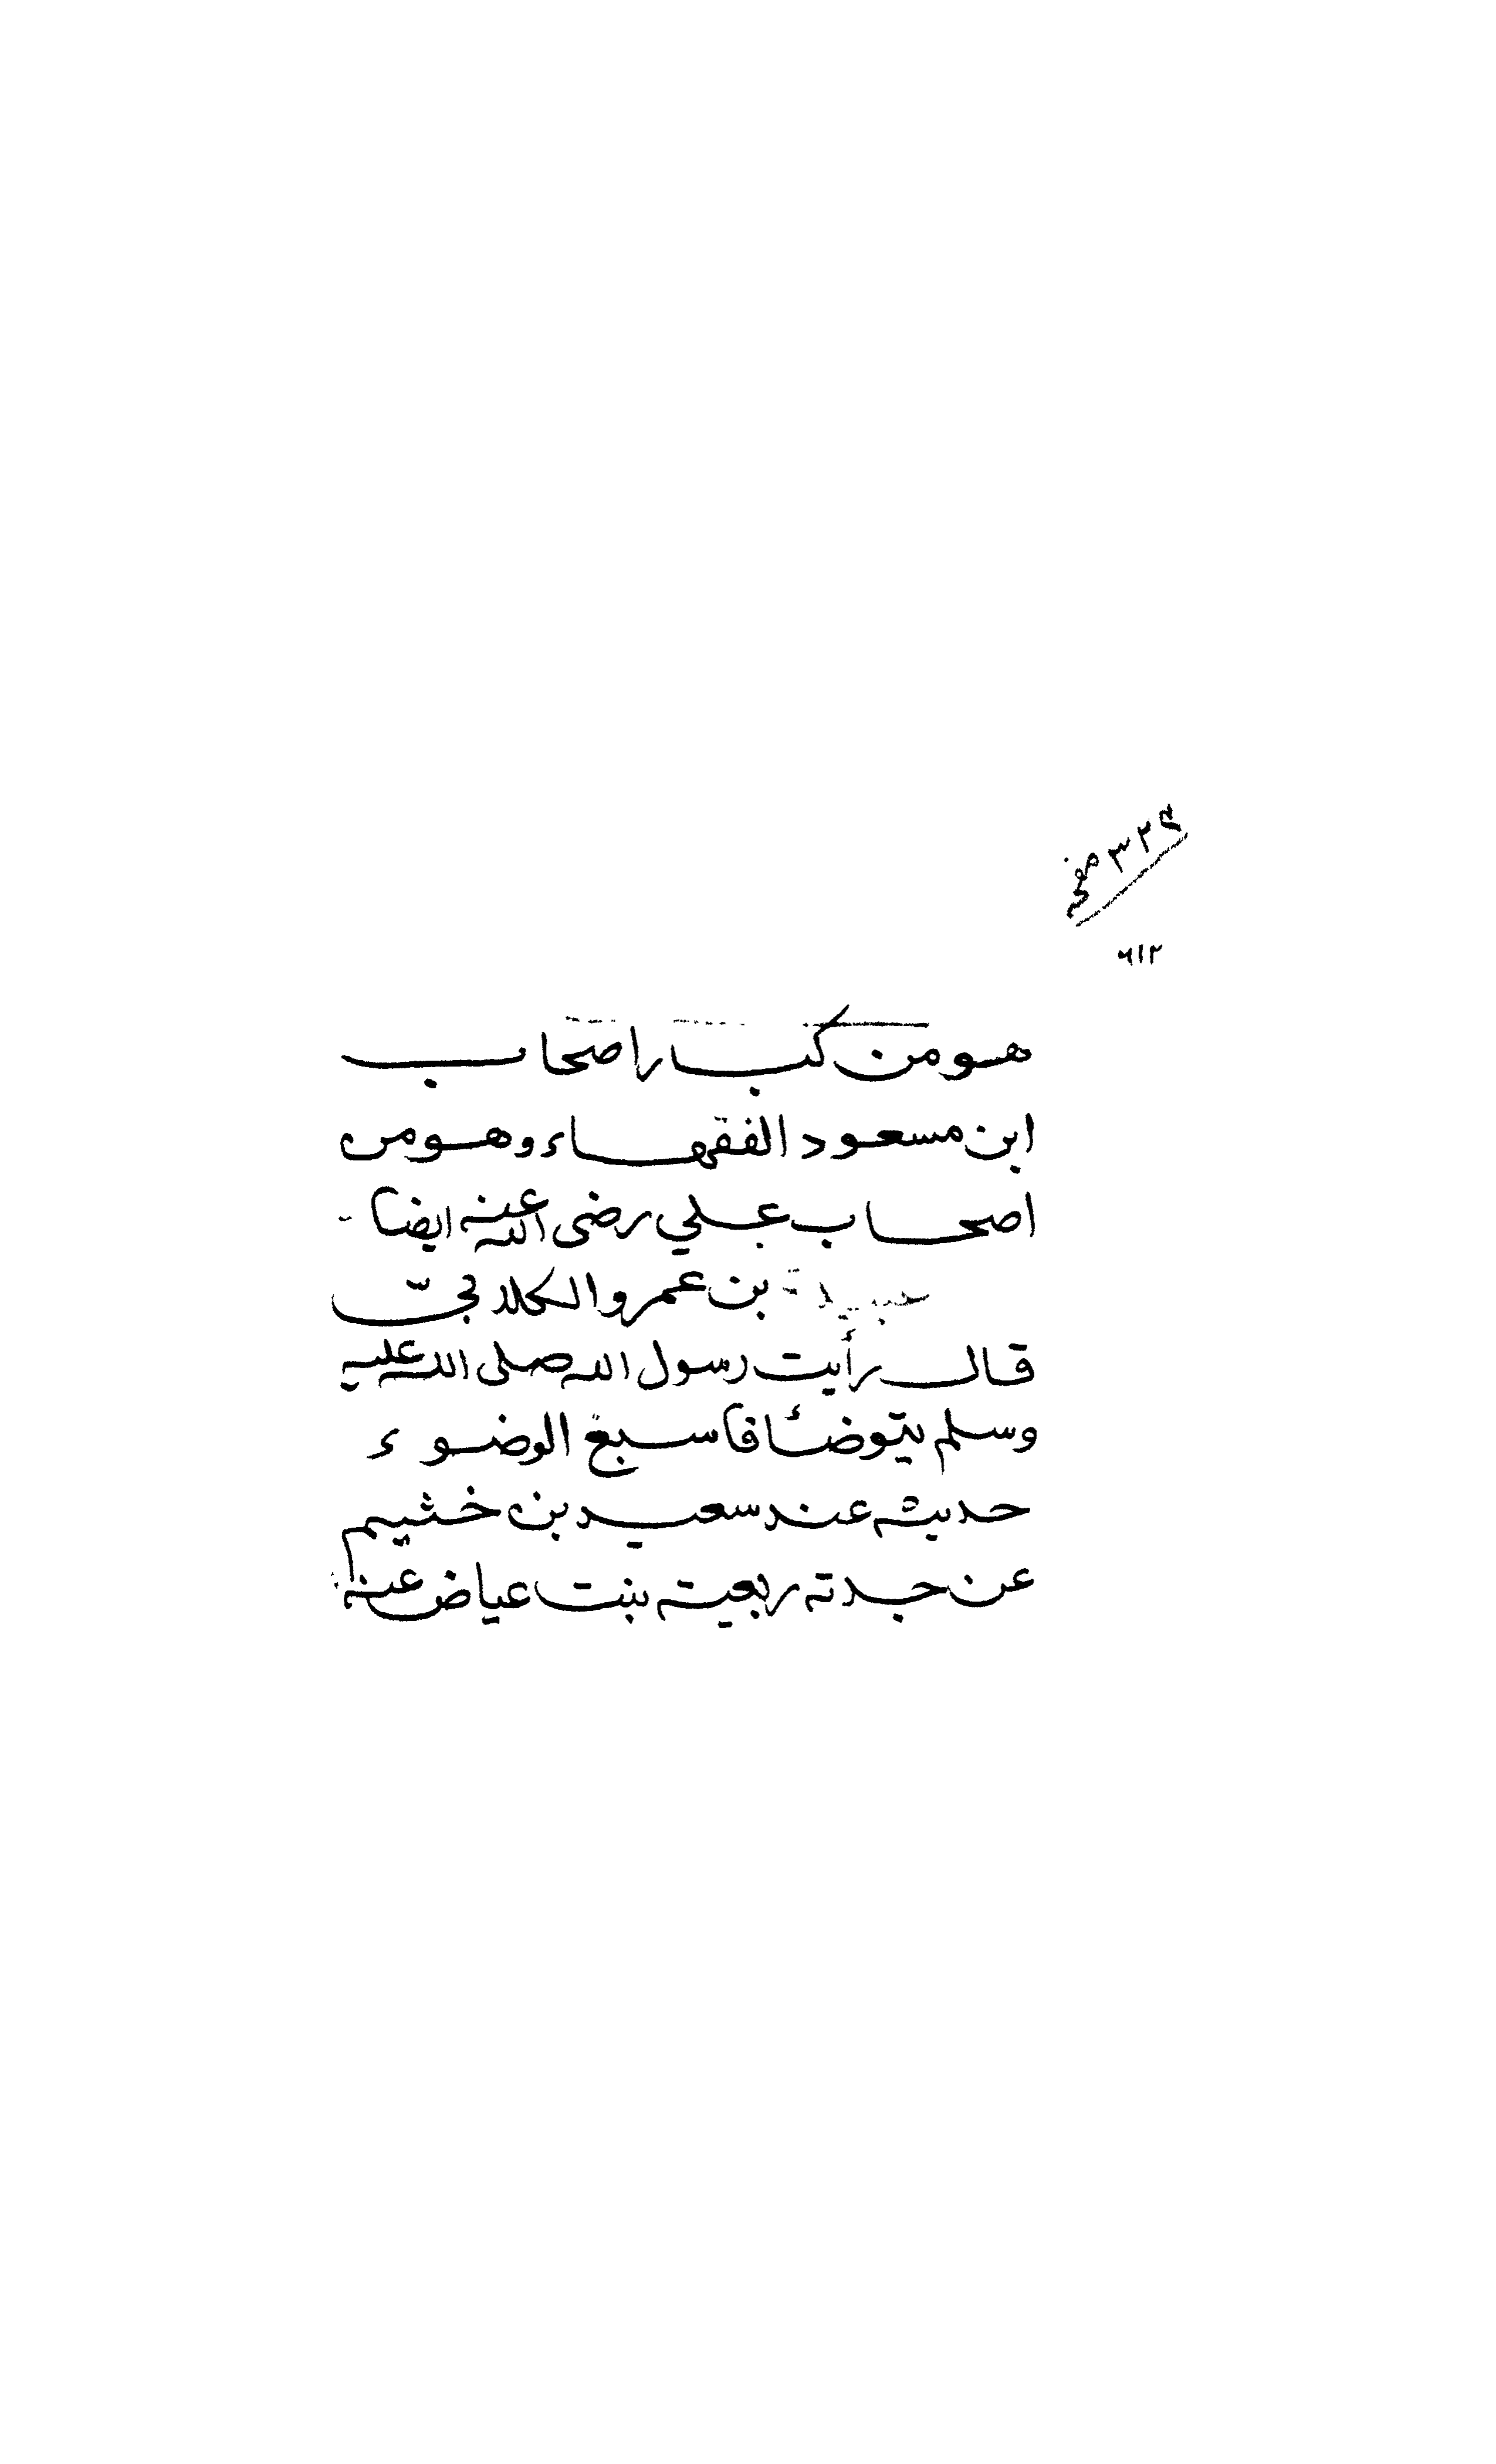 ٣٢٤ صفحه
٦١٢
هو من كبار اصحاب
ابن مسعود الفقهاء وهو من
اصحاب علي رضى الله عنه ايضا
عبيدة بن عمرو الكلابيّ
قال رأيت رسول الله صلى الله عليه
وسلم يتوضأ فاسبغ الوضوء
حديثه عند سعيد بن خثيم
عن جدته ربعية بنت عياض عنه